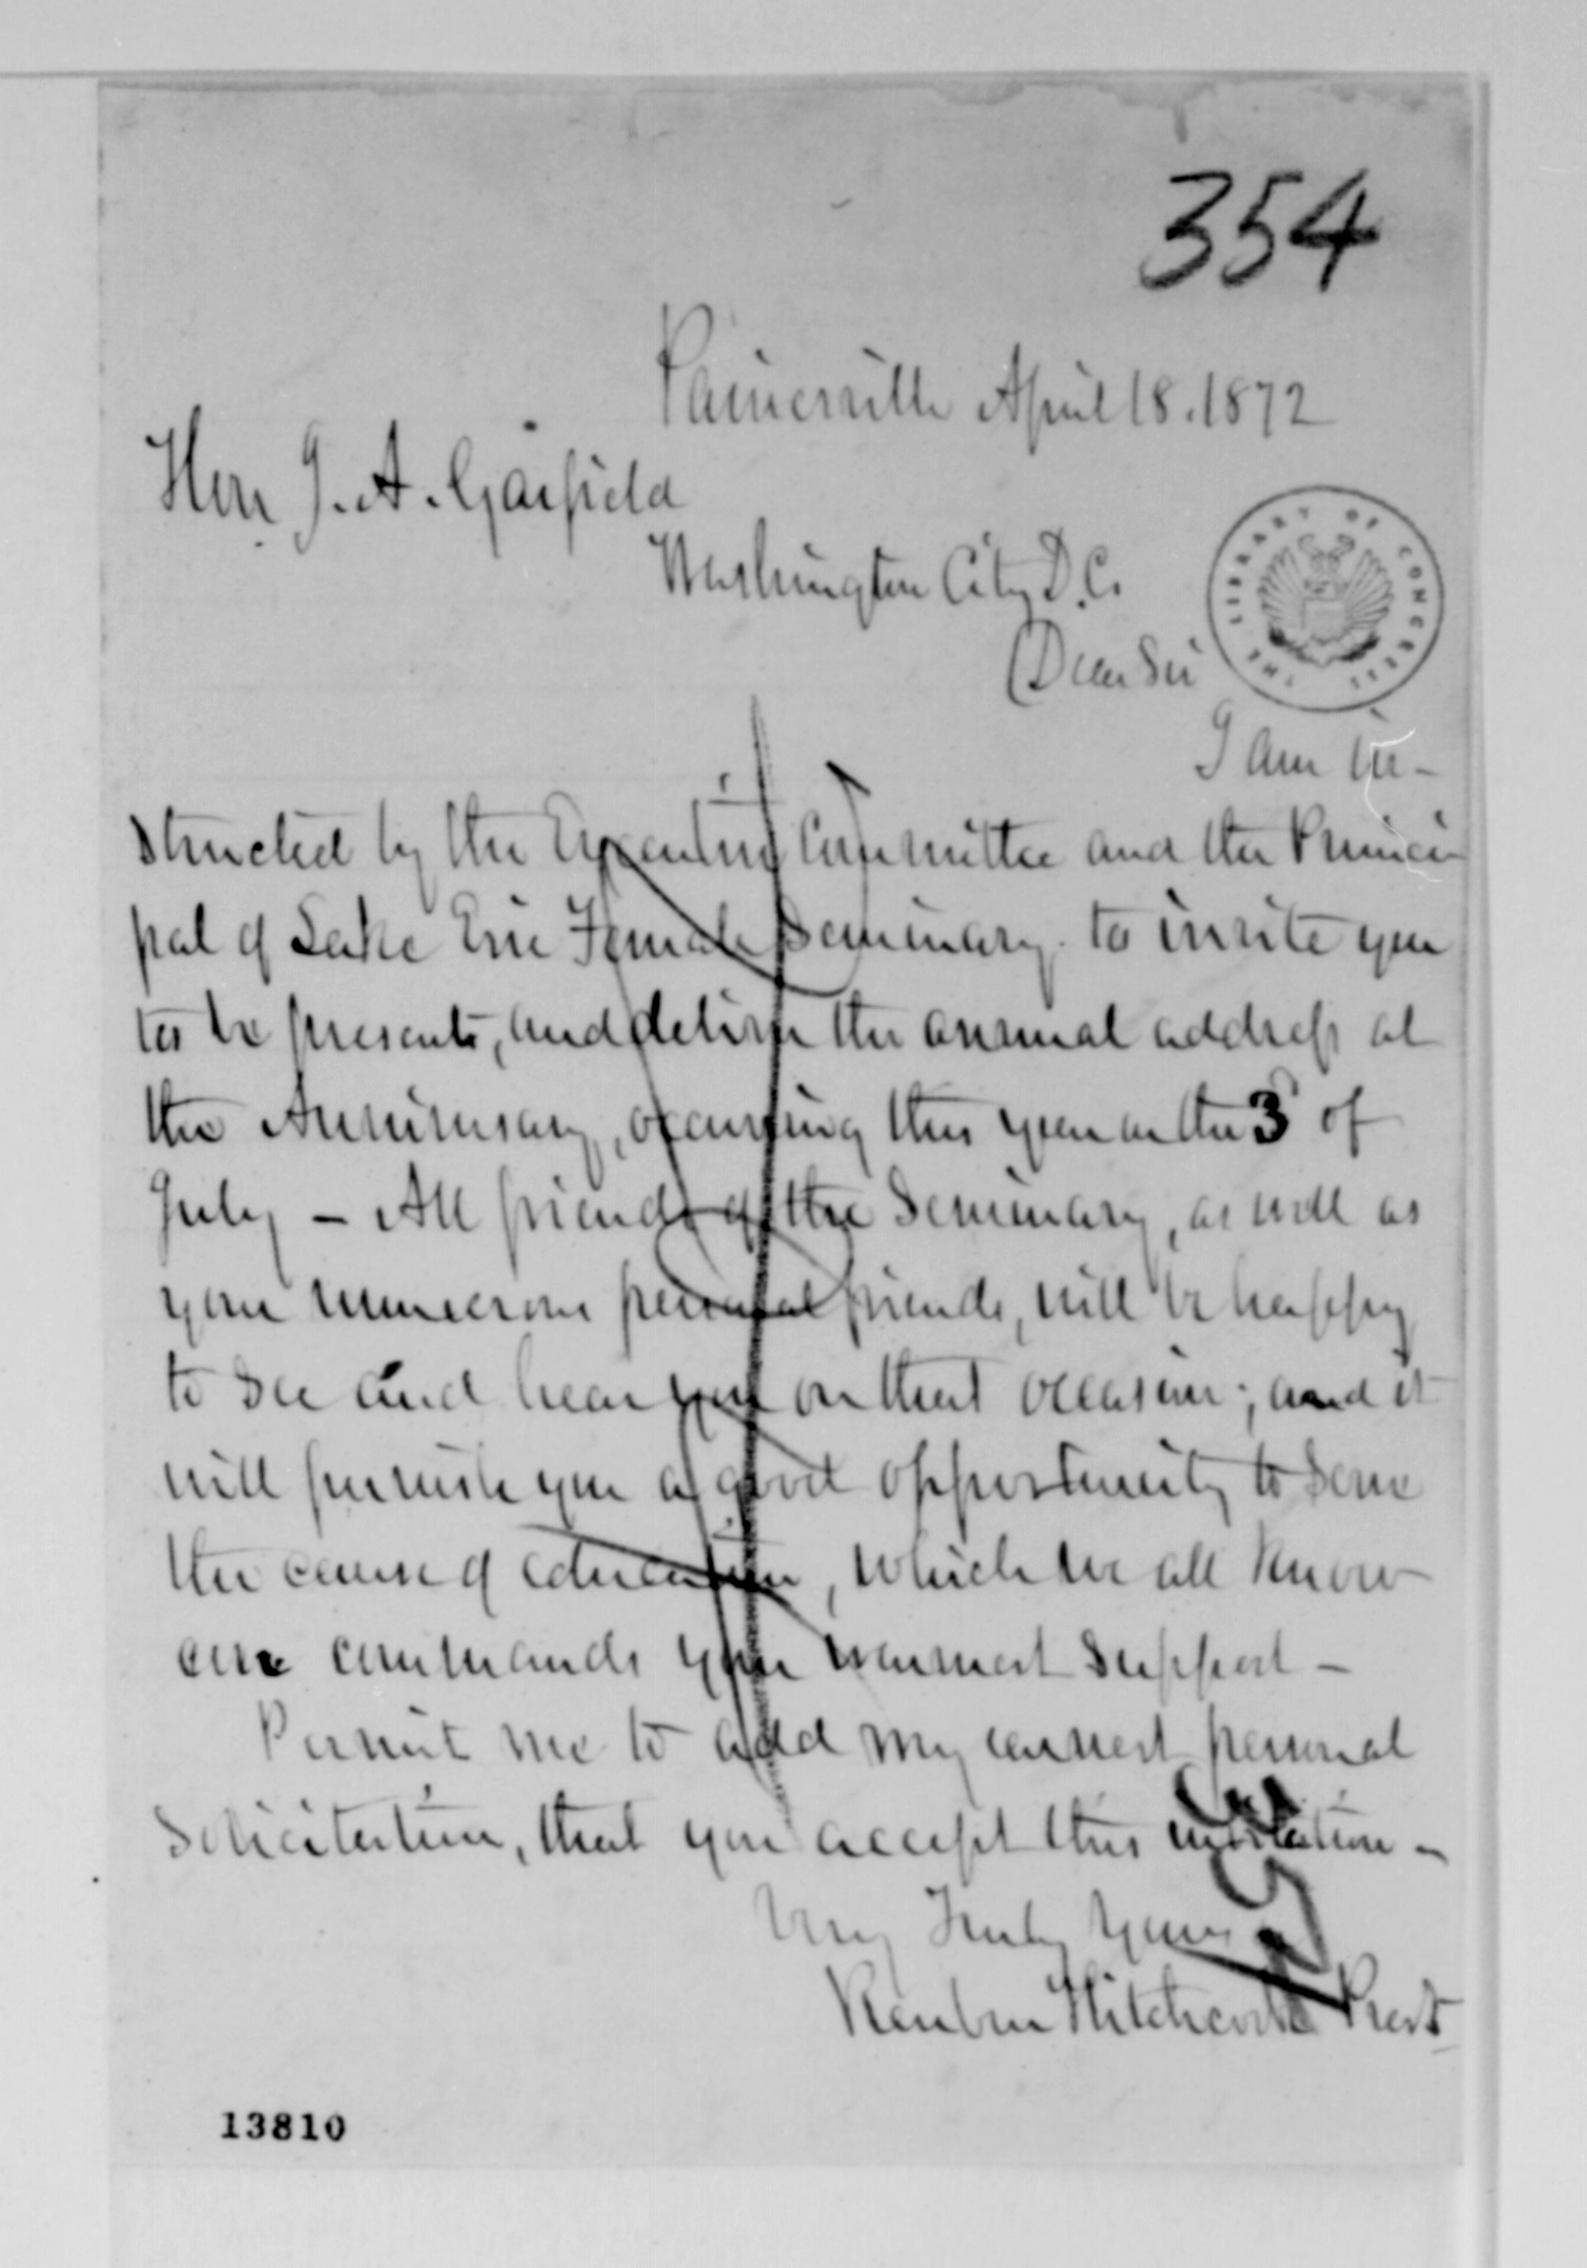 354
Painesville April 18. 1872
Hon J. A. Garfield
Washington City D.C.
Dear Sir
THE LIBRARY OF CONGRESS
I am in-
structed by the Executive Committee and the Princi
pal of Lake Erie Female Seminary. to invite you
to be present, and deliver the annual address at
the Anniversary, occurring this year on the 3 of
July - All friends of the Seminary, as well as
your numerous personal friends, will be happy
to see and hear you on that occasion; and it
will furnish you a good opportunity to serve
the cause of education, which we all know
commands your warmest support -
Permit me to add my earnest personal
solicitation, that you accept this invitation -
Very Truly Yours
Reuben Hitchcock Prest
13810